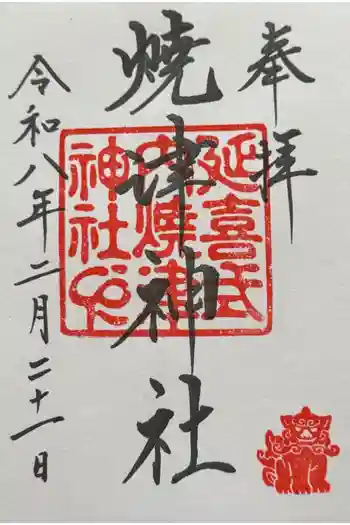 奉拝
焼津神社
令和八年二月二十一日
延喜式
内焼津
神社